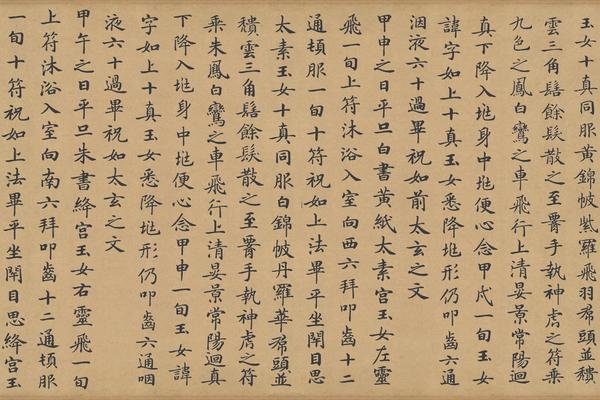 玉女十真同服黃錦帔紫羅飛羽帬頭並穨
雲三角髻餘髮散之至腰手執神虎之符乘
九色之鳳白鸞之車飛行上清晏景常陽迴
真下降入兆身中兆便心念甲戌一旬玉女
諱字如上十真玉女悉降兆形仍叩齒六通
咽液六十過畢祝如前太玄之文
甲申之日平旦白書黃紙太素宮玉女左靈
飛一旬上符沐浴入室向西六拜叩齒十二
通頓服一旬十符祝如上法畢平坐閉目思
太素玉女十真同服白錦帔丹羅華帬頭並
穨雲三角髻餘髮散之至腰手執神虎之符
乘朱鳳白鸞之車飛行上清晏景常陽迴真
下降入兆身中兆便心念甲申一旬玉女諱
字如上十真玉女悉降兆形仍叩齒六通咽
液六十過畢祝如太玄之文
甲午之日平旦朱書絳宮玉女右靈飛一旬
上符沐浴入室向南六拜叩齒十二通頓服
一旬十符祝如上法畢平坐閉目思絳宮玉